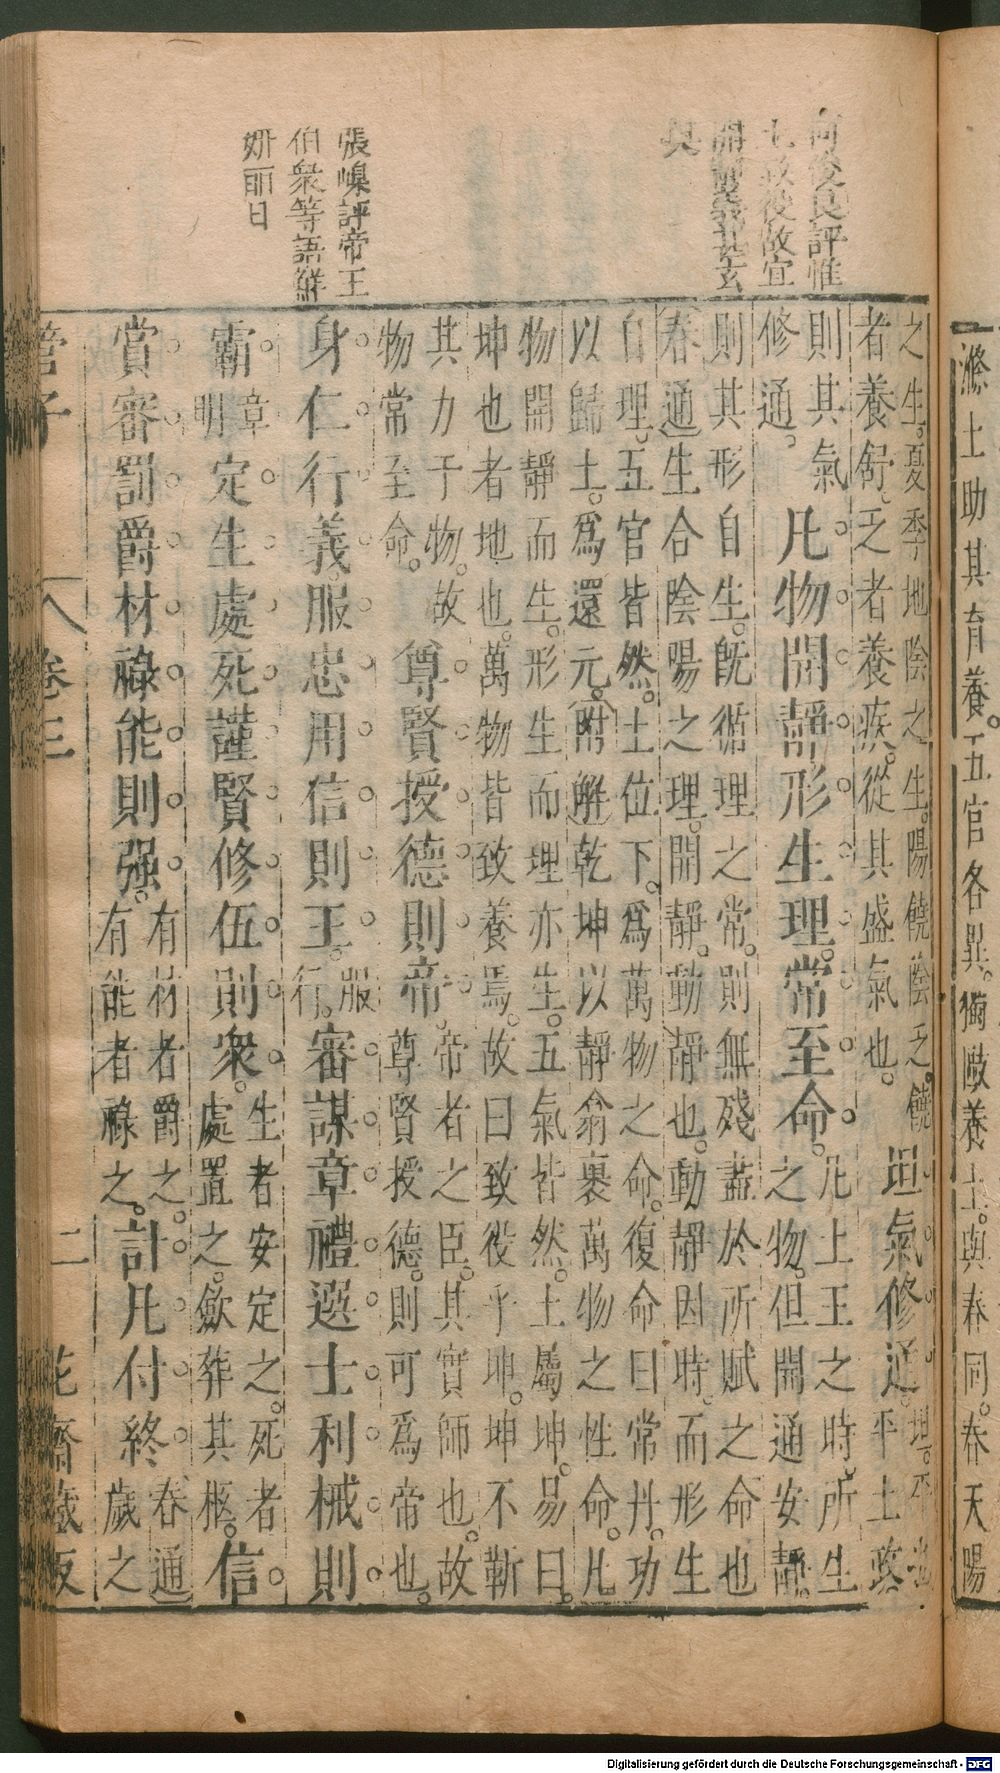 滌土助其育養。五官各異。獨敺養土。與春同。春天陽
之生。夏季地陰之生。陽饒陰乏。饒
者養舒。乏者養疾。從其盛氣也。
坦氣修通。
坦。平也
平土政
則其氣
修通。
凡物開靜。形生理。常至命。
凡上王之時。所生
之物。但開通安靜。
則其形自生。旣循理之常。則無殘蓋於所賦之命也
春通生合陰陽之理。開靜。動靜也。動靜因時。而形生
自理。五官皆然。土位下。爲萬物之命。復命曰常丹。功
以歸土。爲還元。附解乾坤以靜翕裹萬物之性命。凡
物開靜而生。形生而理亦生。五氣皆然。土屬坤。易曰。
坤也者地也。萬物皆致養焉。故曰致役乎坤。坤不靳
其力于物。故
物常至命。
尊賢授德則帝。
帝者之臣。其實師也。故
尊賢授德。則可爲帝也。
身仁行義。服忠用信則王。
服
行。
審謀章禮選士利械則
霸
章
明
定生處死謹賢修伍則衆。
生者安定之。死者
處置之。斂葬其柩。
信
賞審罰爵材祿能則强。
有材者爵之。
有能者祿之。
計凡付終。
春通
歲之
管子
卷三
二
花齋藏板
評惟
故役故宜
義其玄
張嵲評帝王
伯衆等語鮮
妍麗日
Digitalisierung gefördert durch die Deutsche Forschungsgemeinschaft - DFG